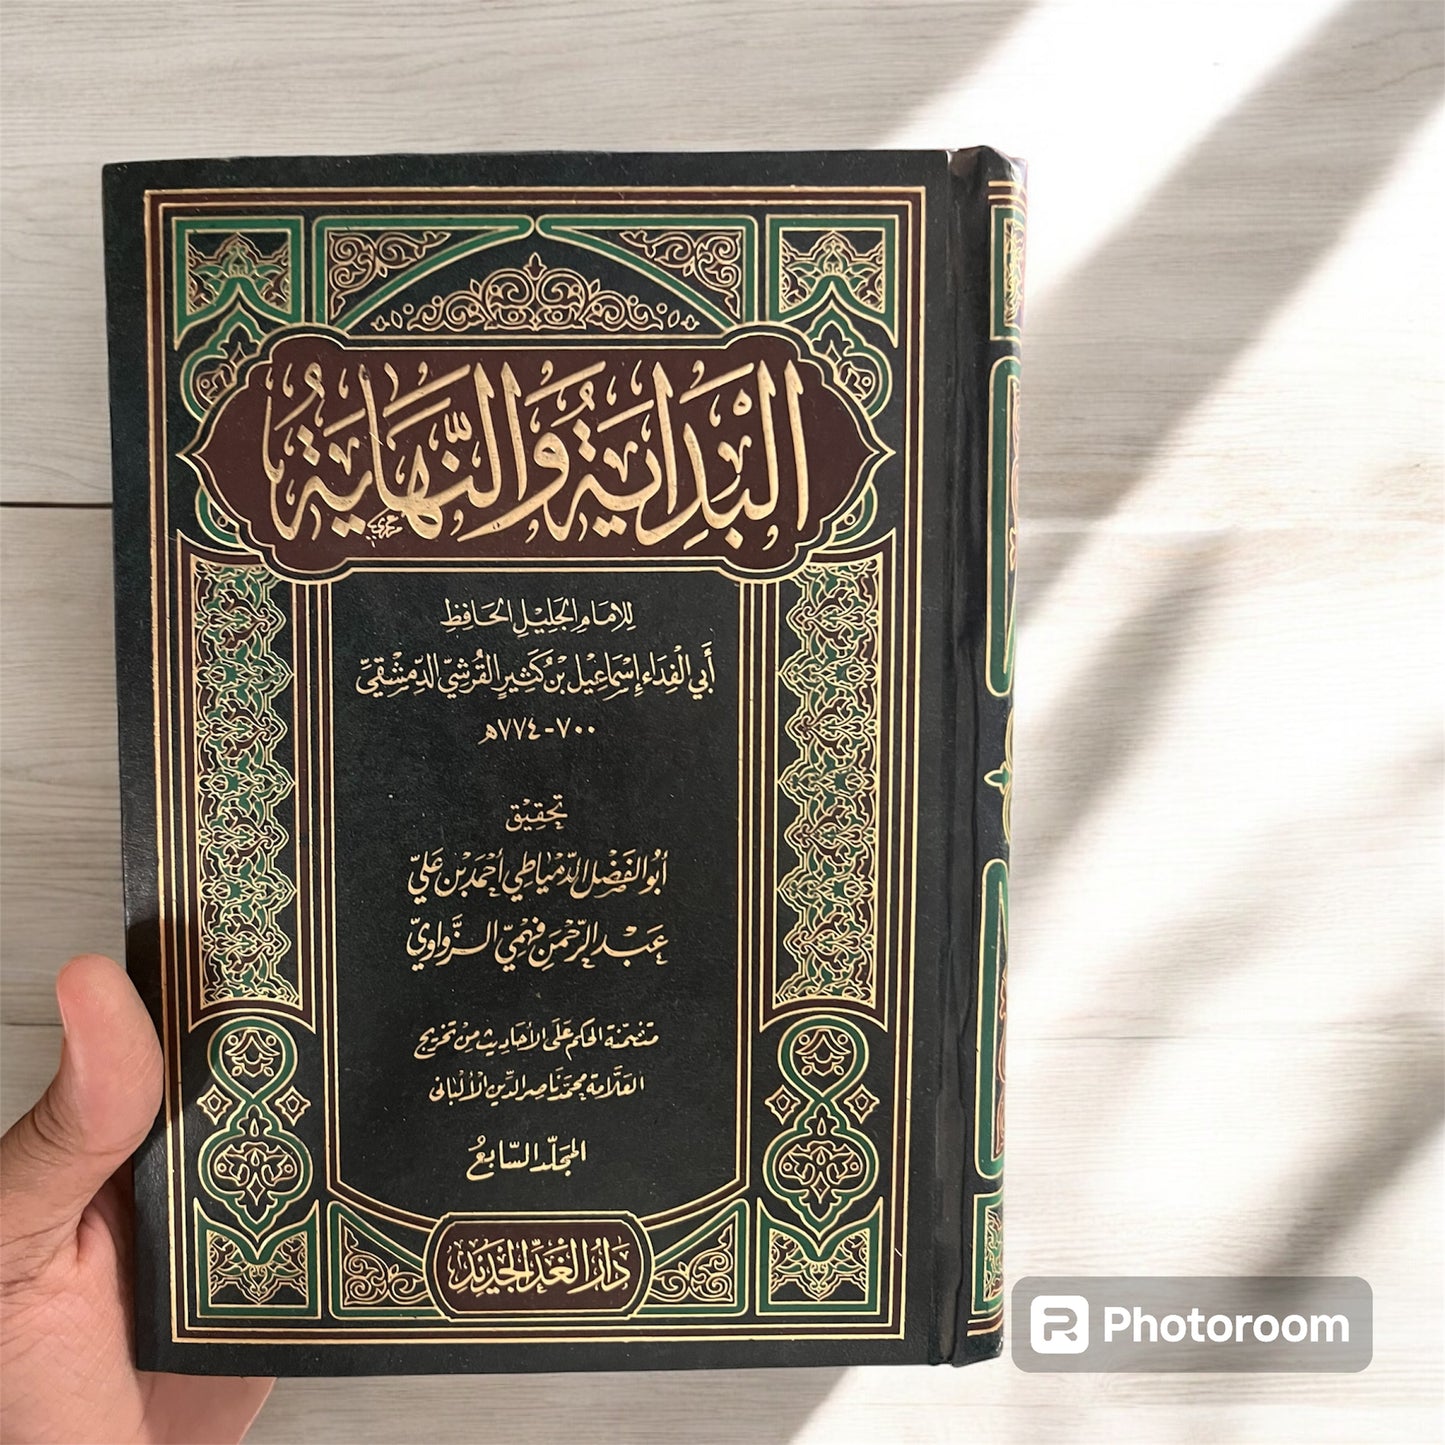 البَدَايَةُ وَالنِّهَايَةُ
للإمَامِ الجَلِيْلِ الحَافِظِ
أَبي الْفِدَاء إِسْمَاعِيْل بْن كَثِيْرٍ القُرشِيِّ الدِّمَشْقِيِّ
٧٠٠-٧٧٤هـ
تَحْقِيْق
أبُو الفَضْل الدِّمْيَاطِي أَحْمَد بْن عَليّ
عَبْد الرَّحْمَن فَهْمِيّ الزَّوَاوِيّ
متضمنة الحكم عَلَى الأحَادِيث مِنْ تخريج
العَلَّامَة مُحَمَّد نَاصِر الدِّين الألْبَاني
المجَلّد السَّابعُ
دَارُ الغَدِ الجَدِيْد
Photoroom